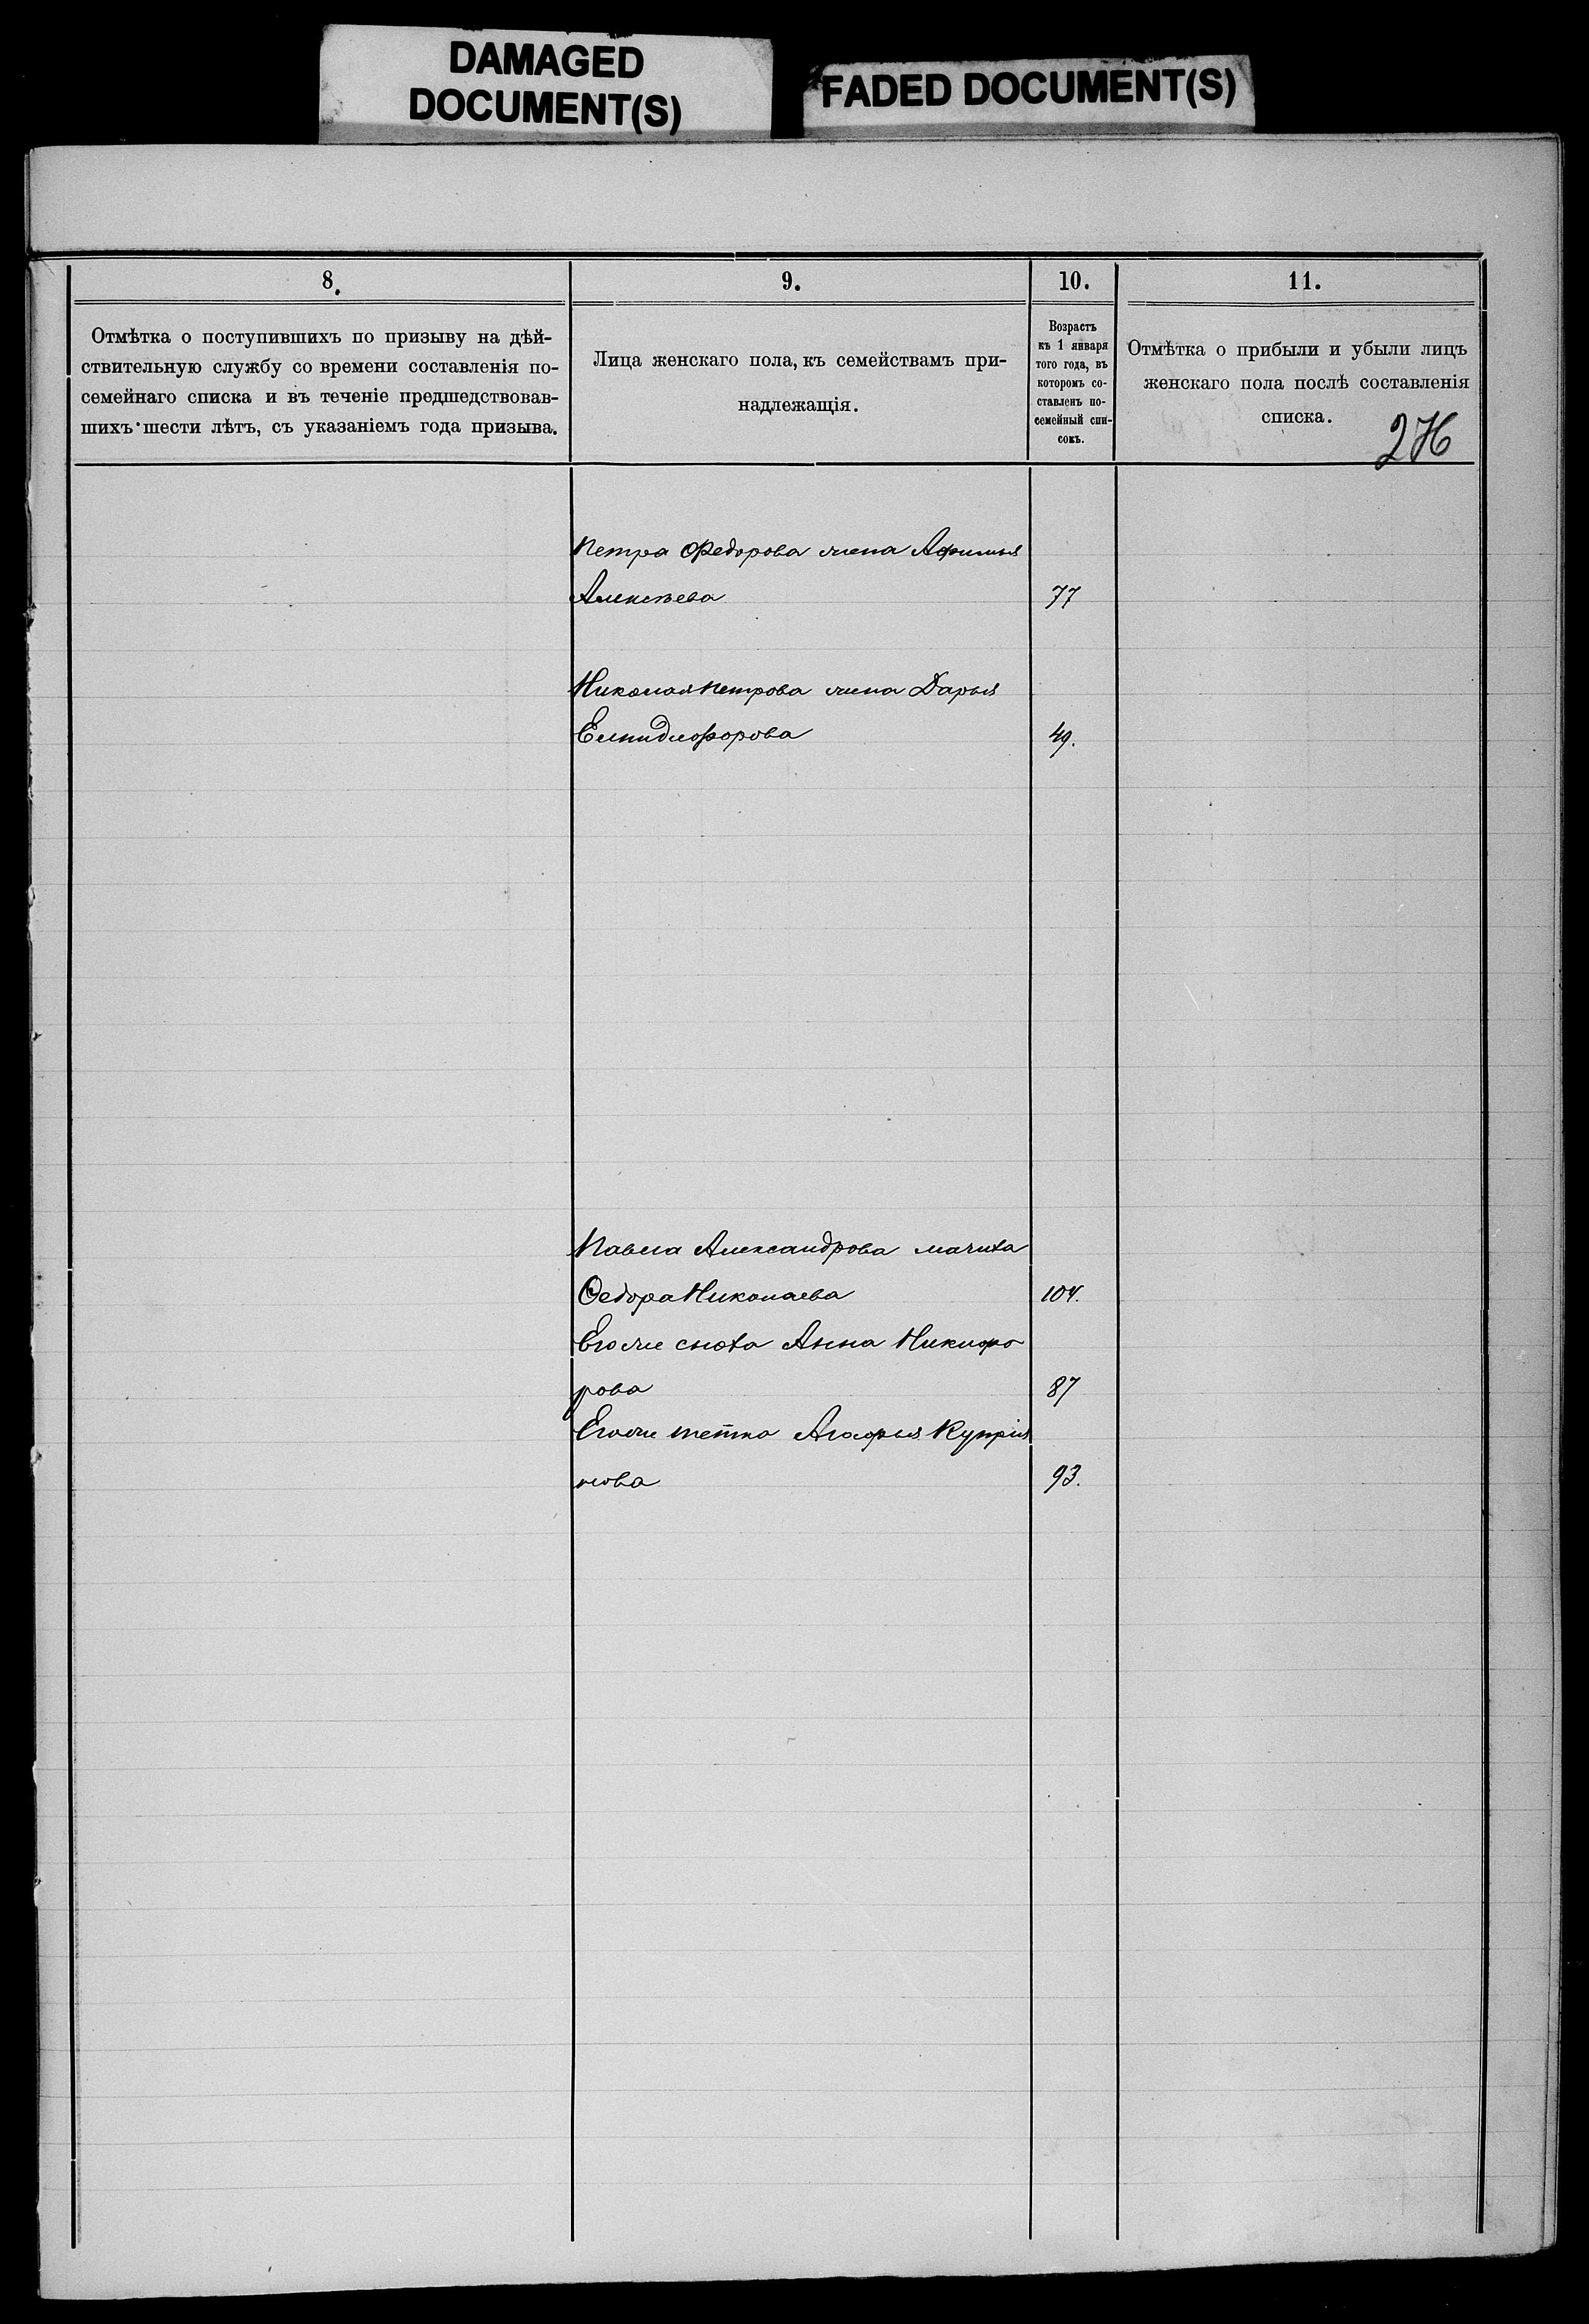 DAMAGED
DOCUMENT(S)
FADED DOCUMENT(S)
8.
Отмѣтка о поступившихъ по призыву на дѣй-
ствительную службу со времени составленія по-
семейнаго списка и въ теченіе предшедствовав-
шихъ шести лѣтъ, съ указаніемъ года призыва.
9.
Лица женскаго пола, къ семействамъ при-
надлежащія.
10.
Возрастъ
къ 1 января
того года, въ
которомъ со-
ставленъ по-
семейный спи-
сокъ.
11.
Отмѣтка о прибыли и убыли лицъ
женскаго пола послѣ составленія
списка.
276
Петра Федорова жена Афимья
Алексѣева 77
Николая Петрова жена Дарья
Елпидиофорова 49.
Павла Александрова мачиха
Ѳедора Николаева 104.
Егоже сноха Анна Никифо
рова 87
Егоже тетка Агафья Купрія
нова 93.